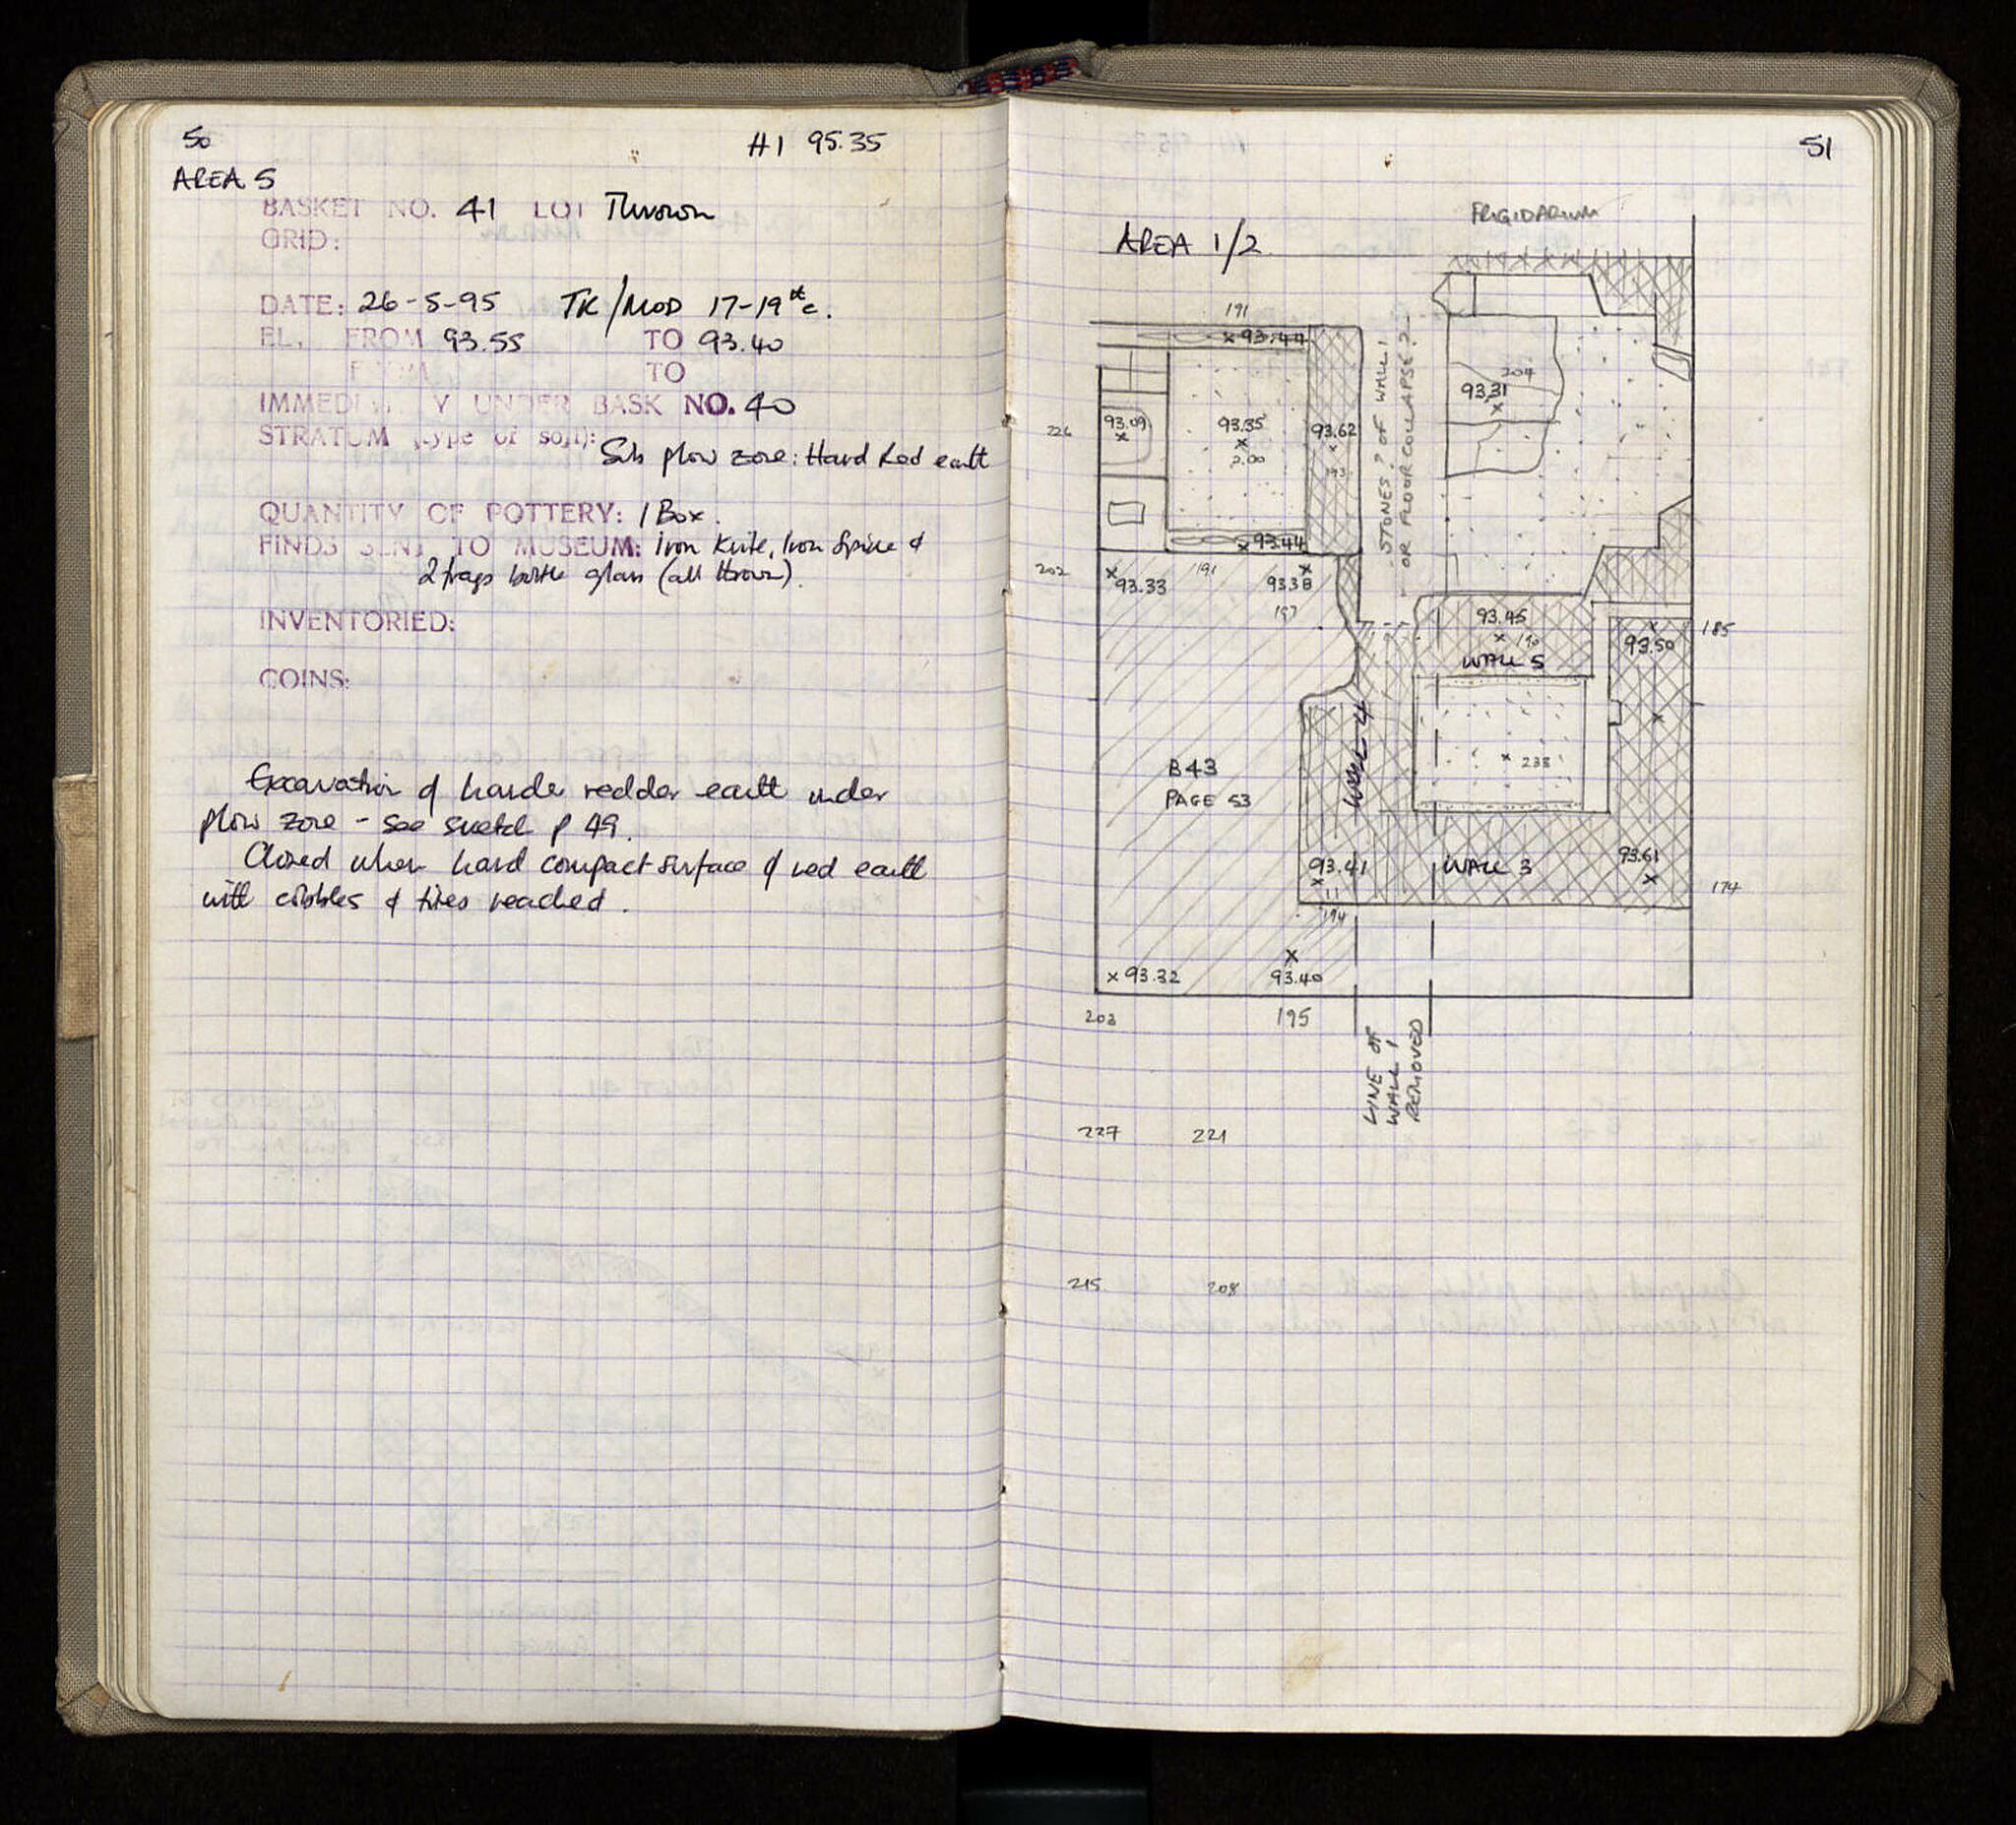 50
H1 95.35
AREA 5
BASKET NO. 41 LOT Thrown
GRID:
DATE: 26-5-95 TK/MOD 17-19th c.
EL. FROM 93.55 TO 93.40
FROM TO
IMMEDI Y UNDER BASK NO. 40
STRATUM (type of soil):
Sub plow zone: Hard Red earth
QUANTITY OF POTTERY: 1 Box.
FINDS SENT TO MUSEUM: Iron Knife, Iron Spike &
2 frags bottle glass (all thrown).
INVENTORIED:
COINS:
Excavation of harder redder earth under
plow zone - see sketch p 49.
Closed when hard compact surface of red earth
with cobbles & tiles reached.
51
FRIGIDARIUM
AREA 1/2
191
x 93.44
STONES? OF WALL 1
OR FLOOR COLLAPSE?
204
93.31
x
226
93.09
x
93.35
x
93.62
x
193
x 93.44
202
x
93.33
191
x
93.38
197
93.45
x 190
WALL 5
x
93.50
185
x
WALL 4
x 238
B43
PAGE 53
93.41
x
11
194
WALL 3
93.61
x
174
x 93.32
x
93.40
203
195
LINE OF
WALL 1
REMOVED
227
221
215
208